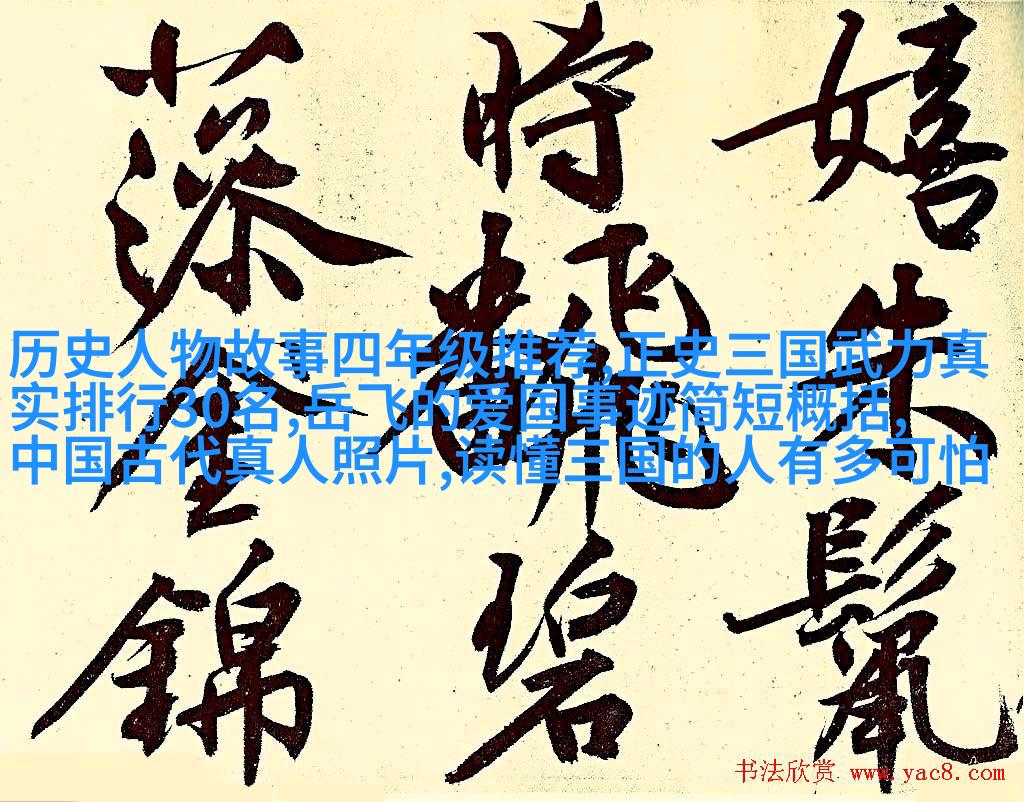 历史人物故事四年级推荐,正史三国武力真
实排行30名,岳飞的爱国事迹简短概括,
中国古代真人照片,读懂三国的人有多可怕
嬉朱鬣
時飜碧
藻全錦
书法欣赏 www.yac8.com